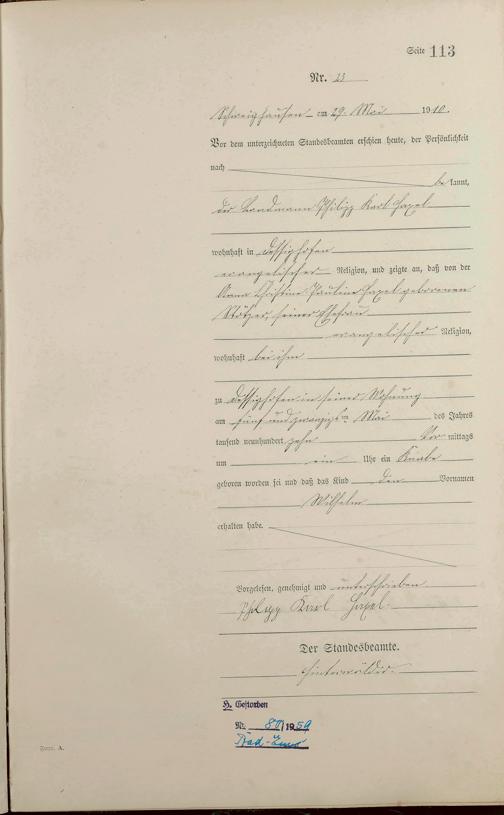 Seite 113
Nr. 23
Schweighausen am 29. Mai 1910.
Vor dem unterzeichneten Standesbeamten erschien heute, der Persönlichkeit
nach
be kannt,
der Landmann Philipp Karl Hasel
wohnhaft in Dessighofen
evangelischer Religion, und zeigte an, daß von der
Anna Christine Pauline Hasel geborenen
seiner Ehefrau
evangelischer Religion,
wohnhaft bei ihm
zu Dessighofen in seiner Wohnung
am fünf und zwanzigsten Mai des Jahres
tausend neunhundert zehn Vor mittags
um ein Uhr ein Knabe
geboren worden sei und daß das Kind den Vornamen
Wilhelm
erhalten habe.
Vorgelesen, genehmigt und unterschrieben
Philipp Karl Hasel.
Der Standesbeamte.
Hinterwälder.
H. Gestorben
Nr. 87/1959
Bad-Ems
Form. A.